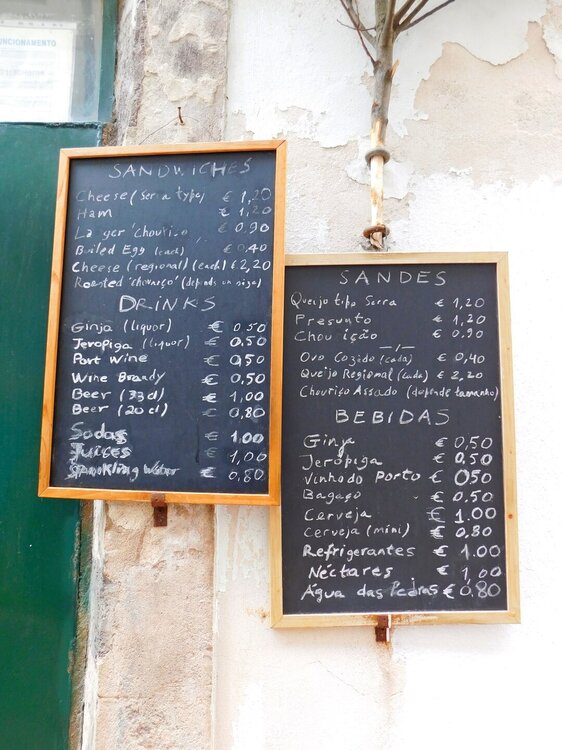 UNCIONAMENTO
SANDWICHES
Cheese (Serra type) € 1,20
Ham € 1,20
Larger 'chouriço' € 0.90
Boiled Egg (each) € 0,40
Cheese (regional) (each) € 2,20
Roasted 'chouriço' (depends on size)
DRINKS
Ginja (liquor) € 0.50
Jeropiga (liquor) € 0.50
Port Wine € 0,50
Wine Brandy € 0.50
Beer (33 cl) € 1,00
Beer (20 cl) € 0,80
Sodas € 1.00
Juices € 1,00
Sparkling water € 0.80
SANDES
Queijo tipo Serra € 1,20
Presunto € 1,20
Chouição € 0.90
Ovo Cozido (cada) € 0,40
Queijo Regional (cada) € 2,20
Chouriço Assado (depende tamanho)
BEBIDAS
Ginja € 0,50
Jeropiga € 0.50
Vinho do Porto € 0,50
Bagaço € 0.50
Cerveja € 1.00
Cerveja (mini) € 0,80
Refrigerantes € 1.00
Néctares € 1,00
Água das Pedras € 0.80